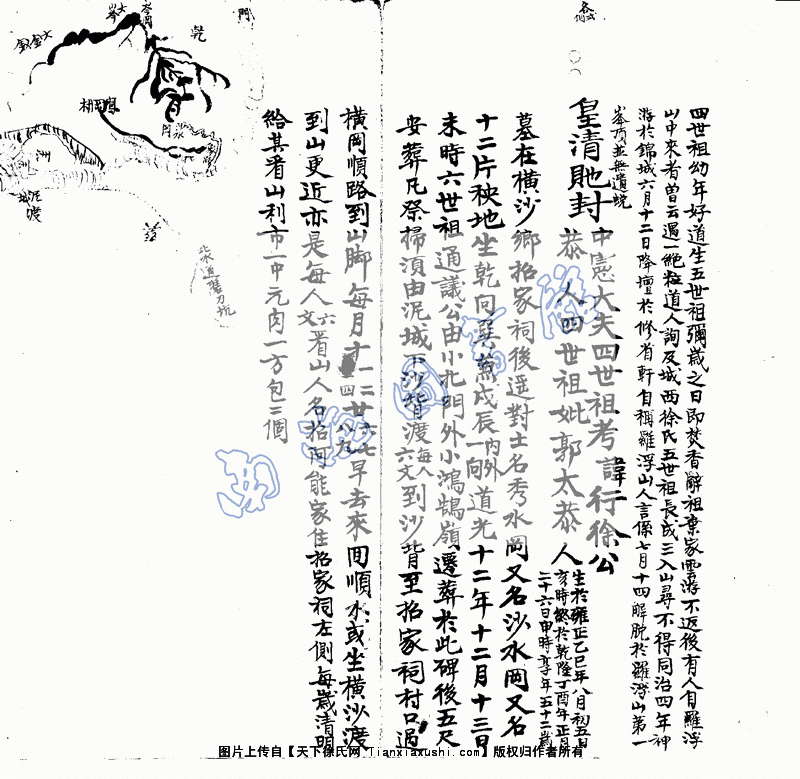 四世祖幼年好道生五世祖彌歲之日即焚香辭祖棄家雲游不返後有人自羅浮
山中來者曾云遇一絕粒道人詢及城西徐氏五世祖長成三入山尋不得同治四年神
游於錦城六月十二日降壇於修省軒自稱羅浮山人言係七月十四解脫於羅浮山第一
峯頂並無遺蛻
皇清貤封
中憲大夫四世祖考諱行二徐公
恭人四世祖妣郭太恭人
生於雍正乙巳年八月初五日
亥時終於乾隆丁酉年正月
二十六日申時享年五十二歲
墓在橫沙鄉招家祠後遥對土名秀水岡又名沙水岡又名
十二片秧地坐乾向巽兼戊辰內外一向道光十二年十二月十三日
未時六世祖通議公由小北門外小鴻鵠嶺遷葬於此碑後五尺
安葬凡祭掃須由泥城下沙背渡每人六文到沙背至招家祠村口過
橫岡順路到山脚每月十一二廿六七四八九早去來回順水或坐橫沙渡
到山更近亦是每人六文看山人名招阿能家住招家祠左側每歲清明
給其看山利市一中元肉一方包三個
乾
大
洲
洲
泥城
渡
图片上传自【天下徐氏网 Tianxiaxushi.com】版权归作者所有